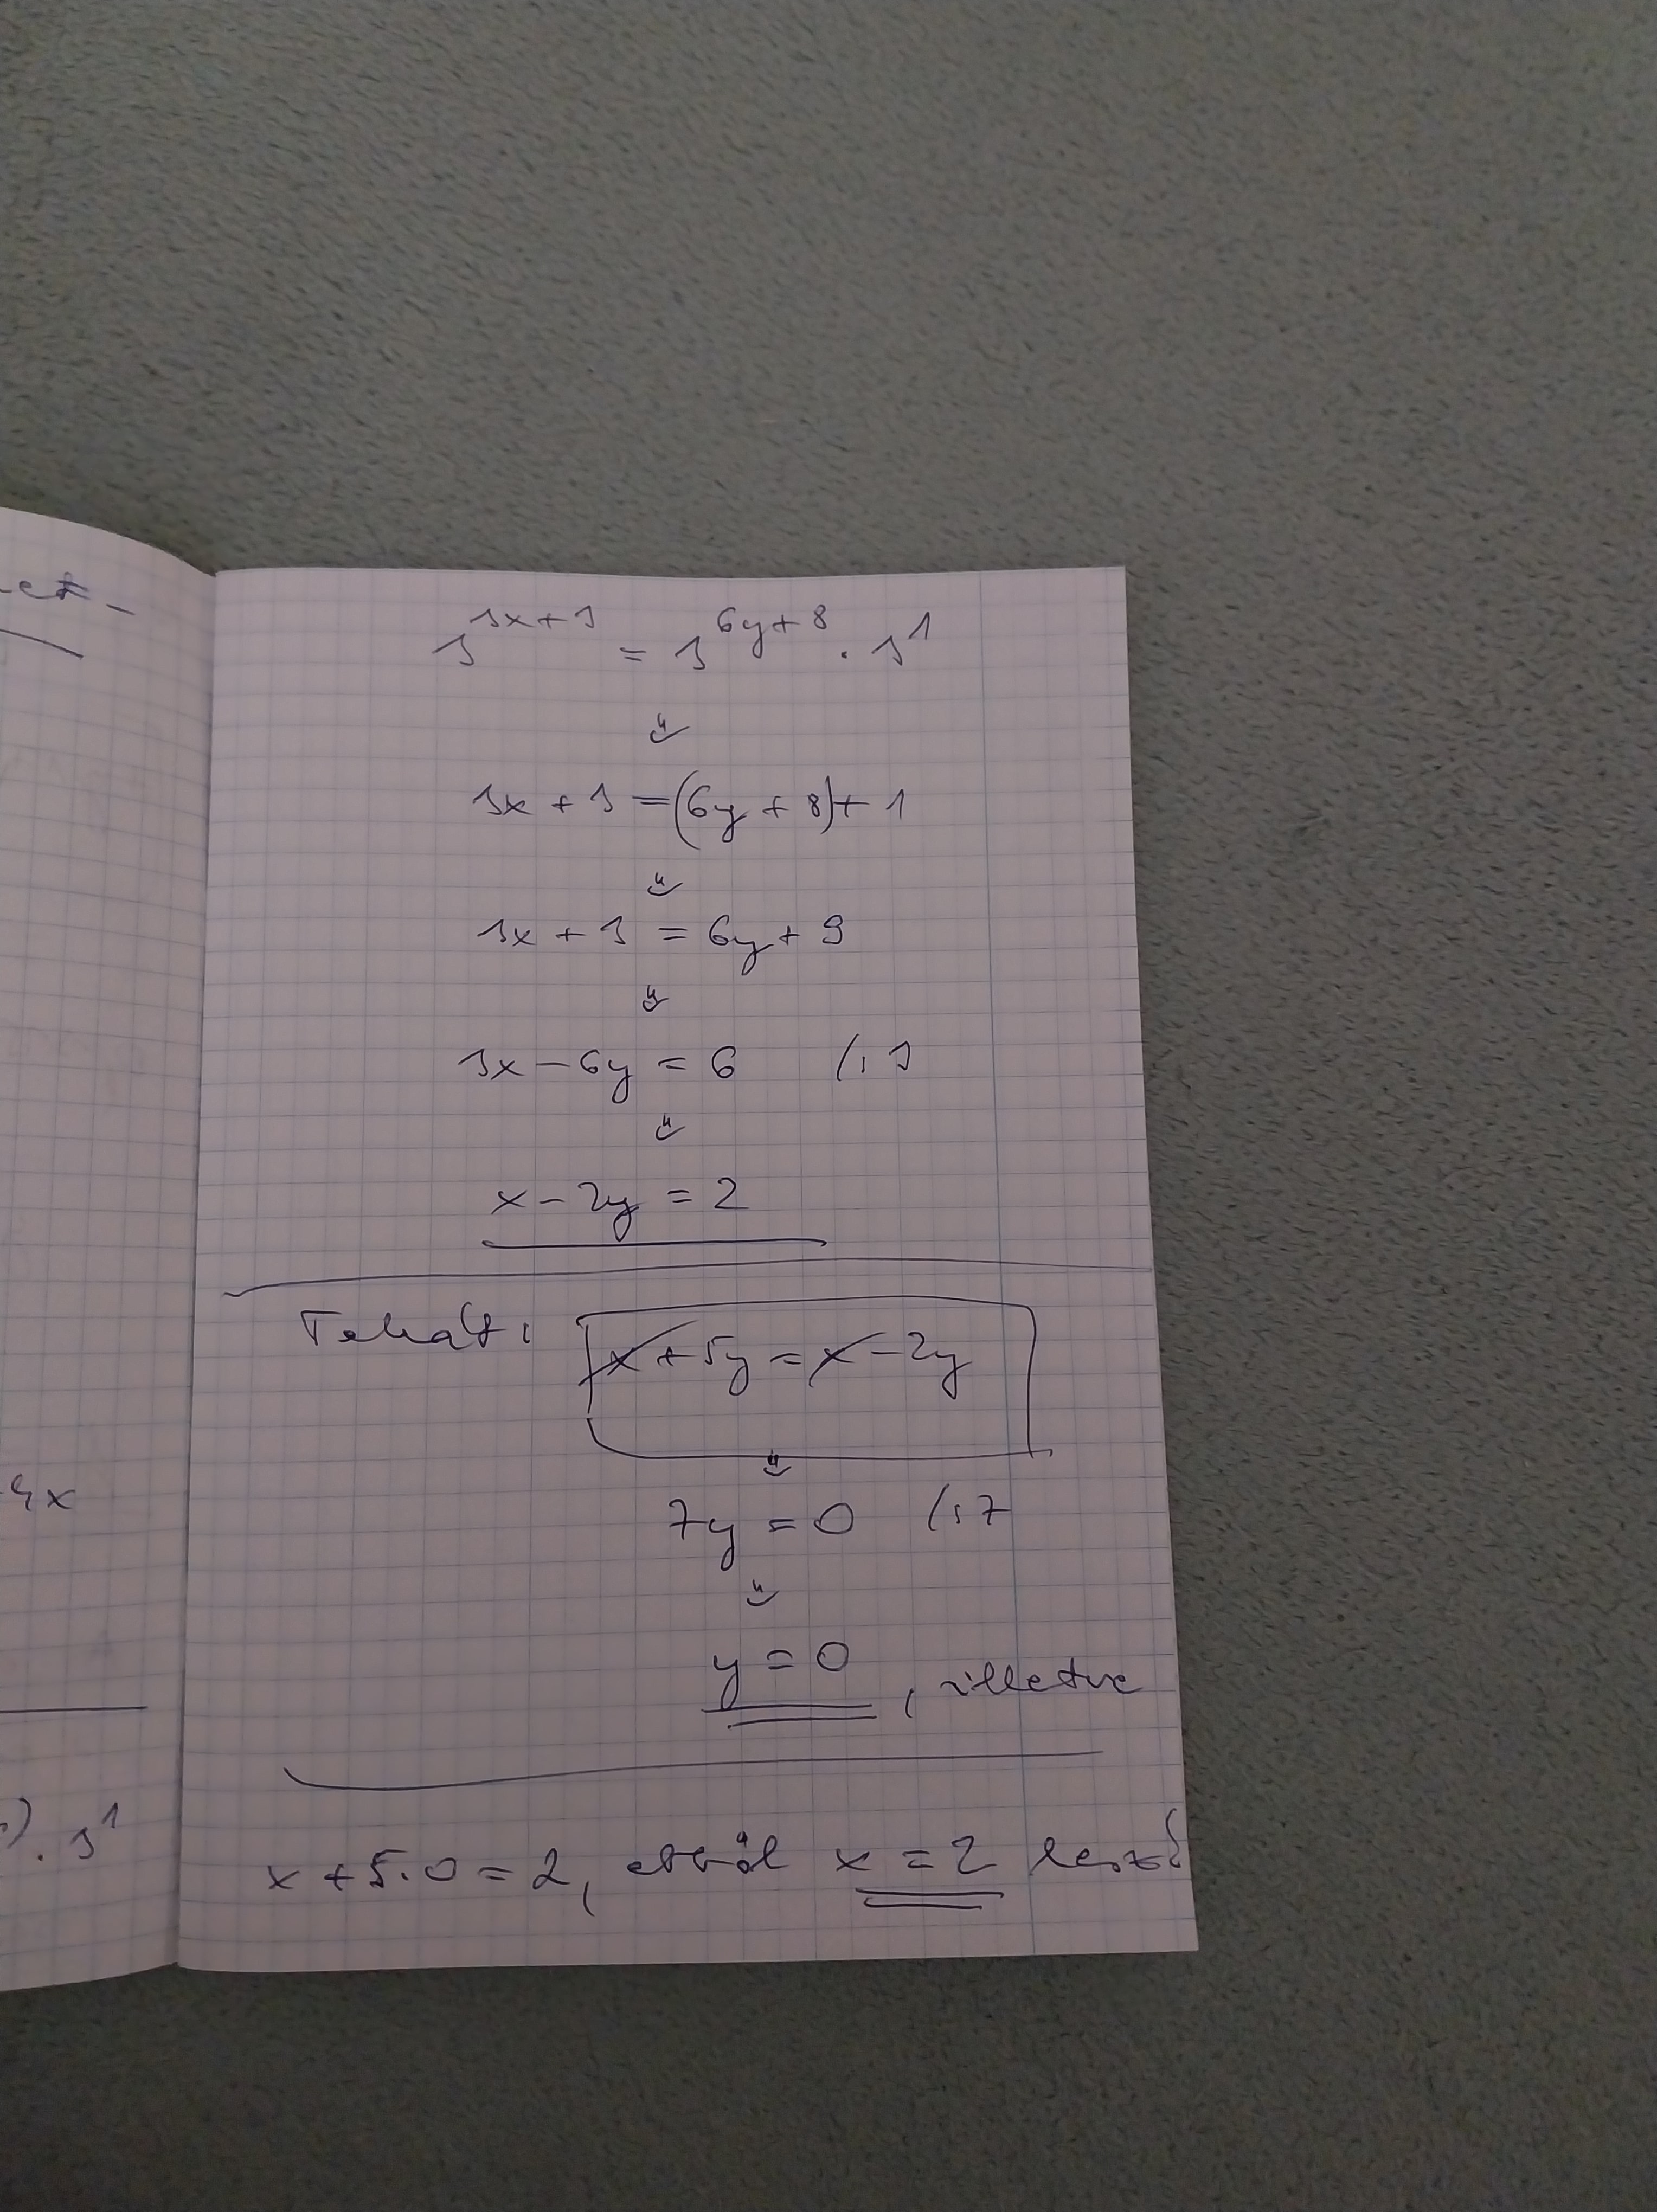 4x
. 3¹
3^(3x+3) = 3^(6y+8) · 3¹
⇓
3x + 3 = (6y + 8) + 1
⇓
3x + 3 = 6y + 9
⇓
3x - 6y = 6 /: 3
⇓
x - 2y = 2
Tehát:
x + 5y = x - 2y
⇓
7y = 0 /: 7
⇓
y = 0, illetve
x + 5·0 = 2, ebből x = 2 lesz!